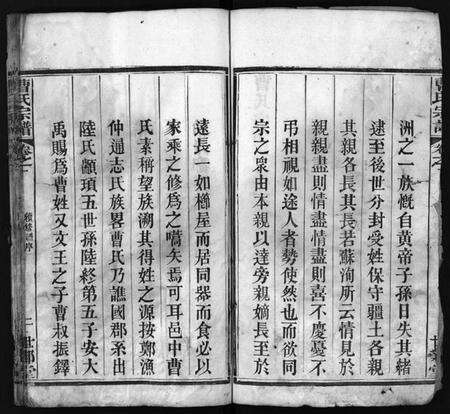 洲之一族慨自黃帝子孫日失其緒
逮至後世分封受姓保守疆土各親
其親各長其長若蘇洵所云情見於
親親盡則情盡情盡則喜不慶憂不
弔相視如途人者勢使然也而欲同
宗之衆由本親以達旁親嫡長至於
遠長一如櫛屋而居同器而食必以
家乘之修爲之嚆矢焉可耳邑中曹
氏素稱望族溯其得姓之源按鄭漁
仲通志氏族畧曹氏乃譙國郡系出
陸氏顓頊五世孫陸終第五子安大
禹賜爲曹姓又文王之子曹叔振鐸
曹氏宗譜
卷之一
序
二
曹氏宗譜
卷之